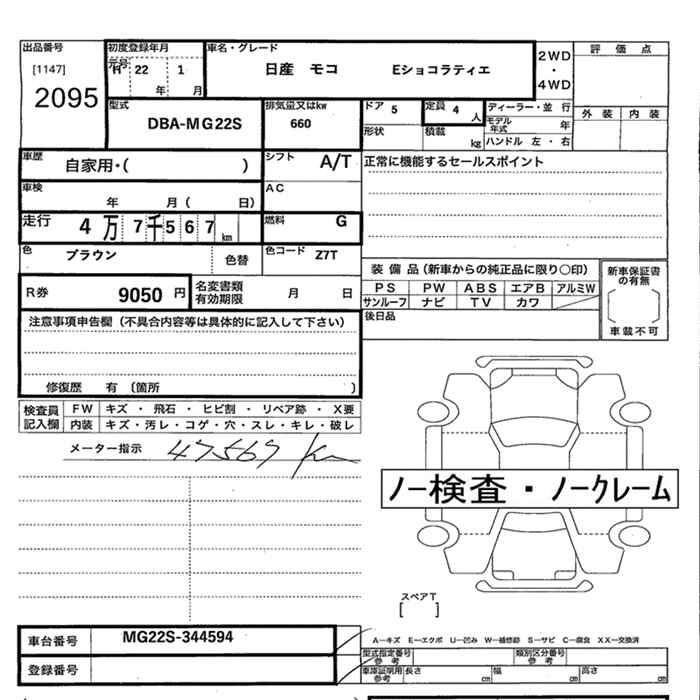 出品番号 初度登録年月 車名・グレード 2WD・4WD 評価点
[1147] 元号 H 22 1 日産 モコ Eショコラティエ
2095 年 月
型式 排気量又はkw ドア 5 定員 4 人 ディーラー・並行 外装 内装
DBA-MG22S 660 形状 積載 kg モデル年式 年
ハンドル 左・右
車歴 自家用・( ) シフト A/T 正常に機能するセールスポイント
車検 年 月( 日) AC
走行 4万7千567 km 燃料 G
色 ブラウン 色替 色コード Z7T
装備品(新車からの純正品に限り○印) 新車保証書の有無
PS PW ABS エアB アルミW
サンルーフ ナビ TV カワ
車載不可
R券 9050 円 名変書類有効期限 月 日
後日品
注意事項申告欄(不具合内容等は具体的に記入して下さい)
修復歴 有 (箇所 )
検査員記入欄 FW キズ・飛石・ヒビ割・リペア跡・X要
内装 キズ・汚レ・コゲ・穴・スレ・キレ・破レ
メーター指示 47567 Km
ノー検査・ノークレーム
スペアT
[ ]
車台番号 MG22S-344594
登録番号
A―キズ E―エクボ U―凹み W―補修跡 S―サビ C―腐食 XX―交換済
型式指定番号 参考 類別区分番号 参考
車庫証明用 参考 長さ cm 幅 cm 高さ cm